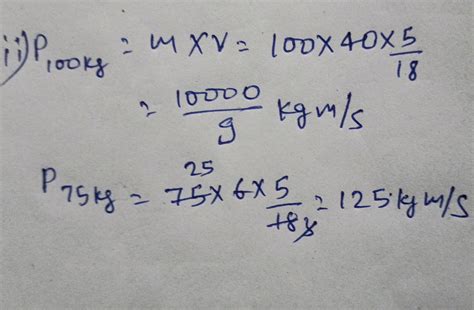 ii) P100kg = m x v = 100 x 40 x 5/18
= 10000/9 kg m/s
P75kg = 75 25 x 6 x 5/18 3 = 125 kg m/s